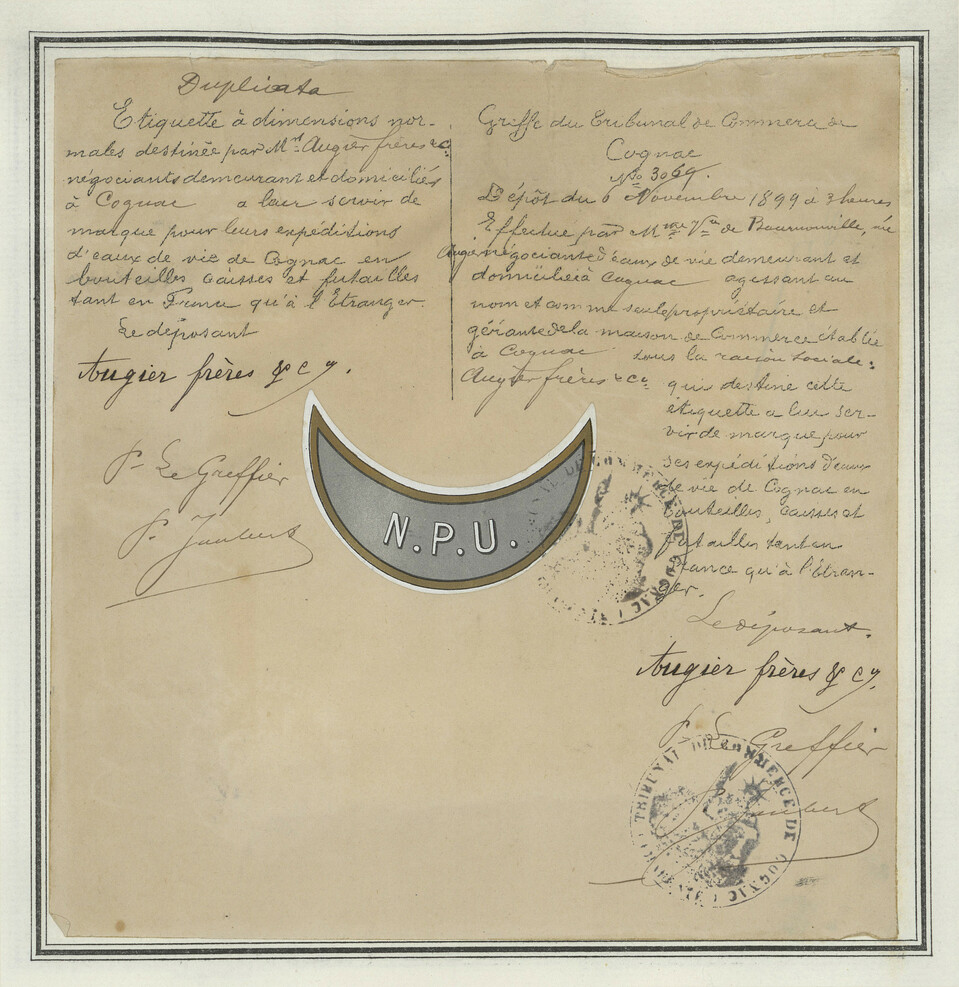 Duplicata
Etiquette à dimensions nor-
males destinée par Mrs Augier frères & C°
négociants demeurant et domiciliés
à Cognac a leur servir de
marque pour leurs expéditions
d'eaux de vie de Cognac en
bouteilles caisses et futailles
tant en France qu'à l'Etranger.
Le déposant
Augier frères & Cy.
P. Le Greffier
Greffe du Tribunal de Commerce de
Cognac
No 3069.
Dépôt du 6 Novembre 1899 à 3 heures
Effectué par Mme Vve de Bournonville, née
Augier négociante d'eaux de vie demeurant et
domiciliée à Cognac agissant au
nom et comme seule propriétaire et
gérante de la maison de Commerce établie
à Cognac sous la raison sociale:
Augier frères & C° qui destine cette
étiquette a lui ser-
vir de marque pour
ses expéditions d'eaux
de vie de Cognac en
bouteilles, caisses et
futailles tant en
France qu'à l'Etran-
ger.
Le déposant.
Augier frères & Cy.
P. Le Greffier
N.P.U.
TRIBUNAL DE COMMERCE DE COGNAC
TRIBUNAL DE COMMERCE DE COGNAC